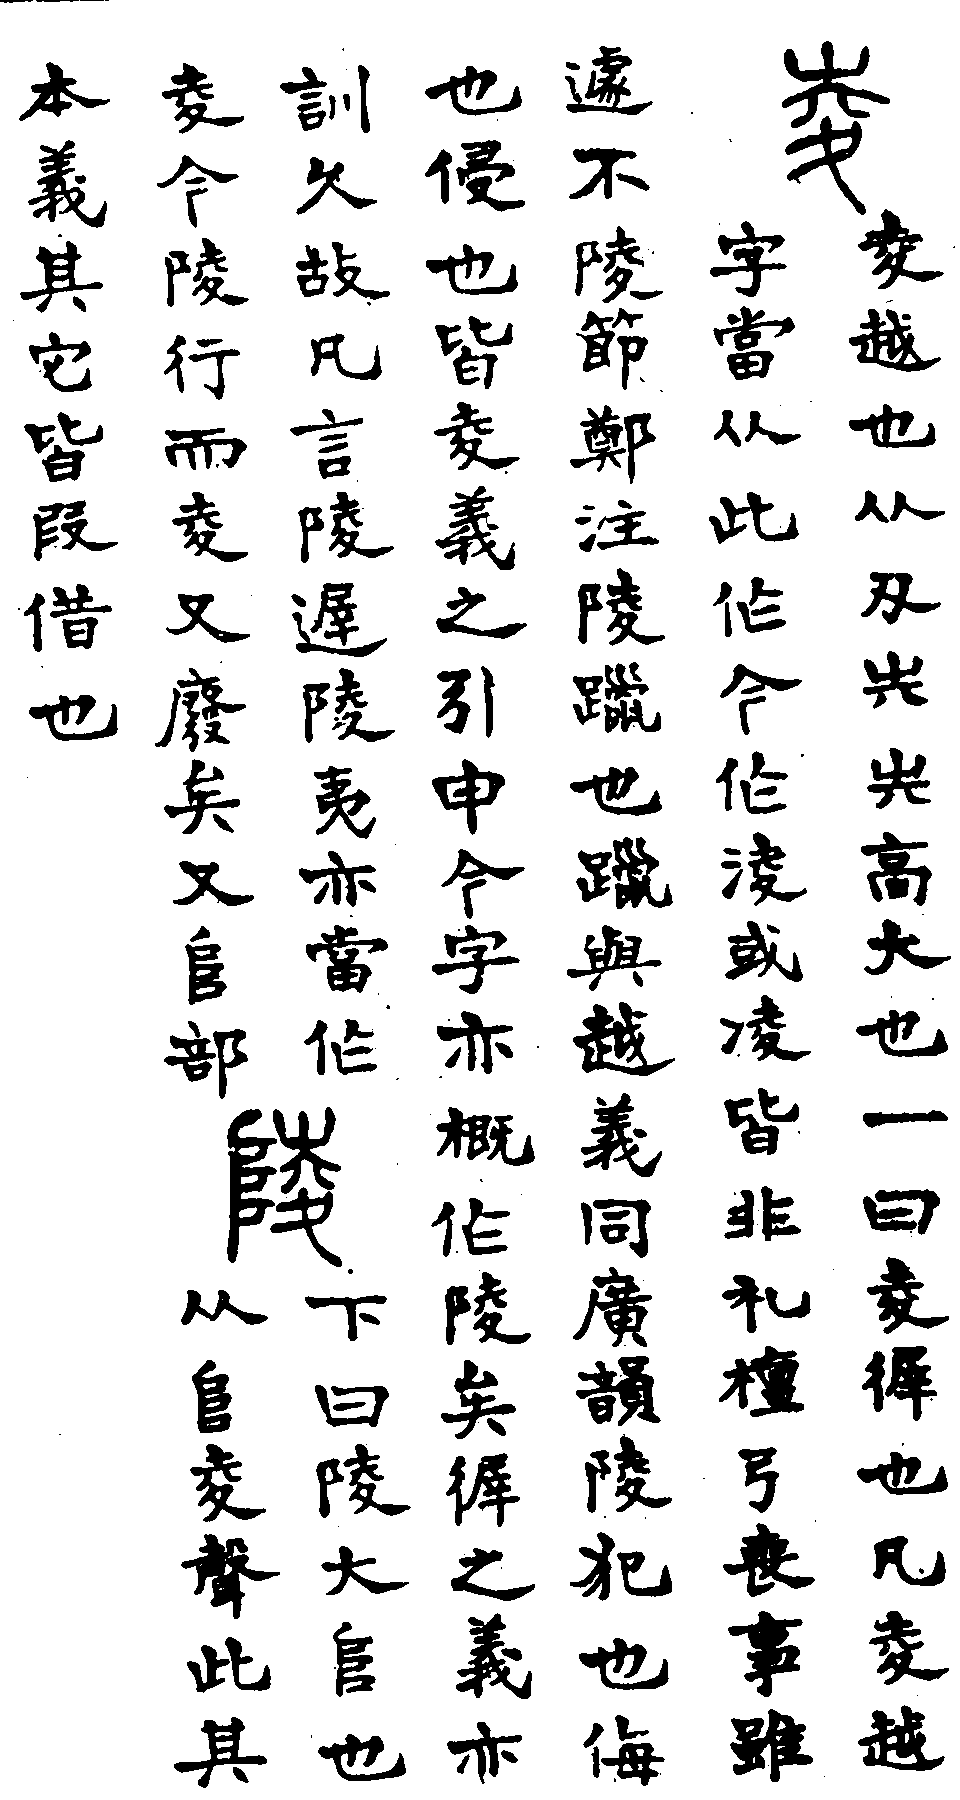 夌
夌越也从夊𡴆𡴆高大也一曰夌徲也凡夌越
字當从此作今作淩或凌皆非礼檀弓喪事雖
遽不陵節鄭注陵躐也躐與越義同廣韻陵犯也侮
也侵也皆夌義之引申今字亦概作陵矣徲之義亦
訓久故凡言陵遟陵夷亦當作
夌今陵行而夌又廢矣又𨸏部
陵
下曰陵大𨸏也
从𨸏夌聲此其
本義其它皆叚借也